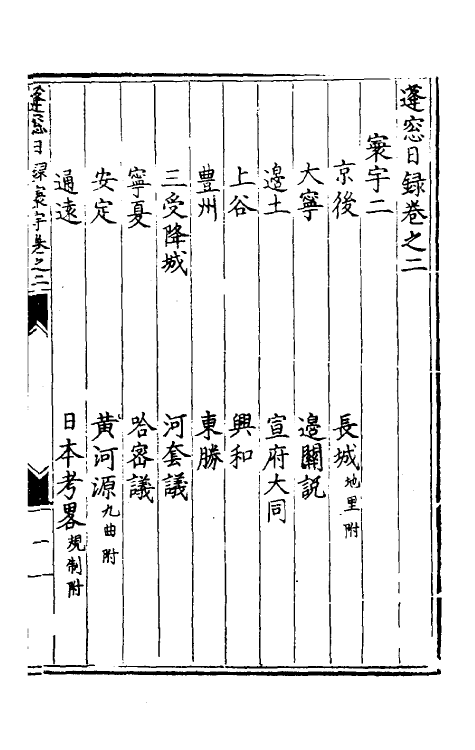 蓬窓日録卷之二
寰宇二
京後　長城地里附
大寧　邊關說
邊土　宣府大同
上谷　興和
豊州　東勝
三受降城　河套議
寧夏　哈密議
安定　黄河源九曲附
通遠　日本考畧規制附
蓬窓日録寰宇卷之二　一